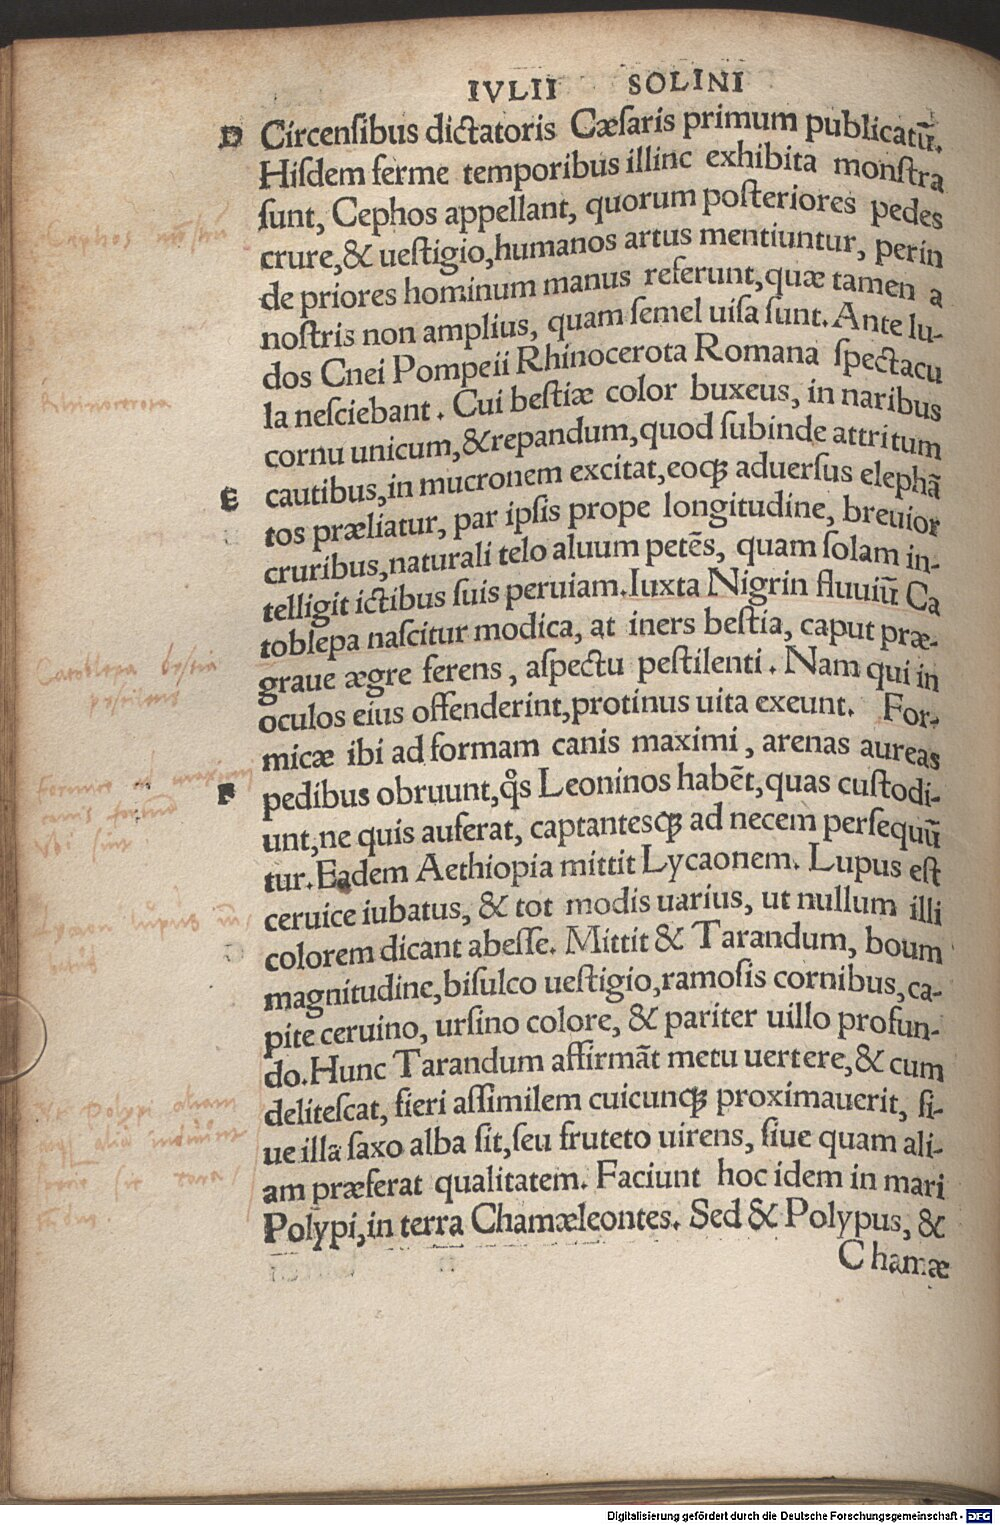 IVLII SOLINI
D Circenſibus dictatoris Cæſaris primum publicatū.
Hiſdem ferme temporibus illinc exhibita monſtra
ſunt, Cephos appellant, quorum poſteriores pedes
crure,& ueſtigio,humanos artus mentiuntur, perin
de priores hominum manus referunt,quæ tamen a
noſtris non amplius, quam ſemel uiſa ſunt. Ante lu-
dos Cnei Pompeii Rhinocerota Romana ſpectacu
la neſciebant. Cui beſtiæ color buxeus, in naribus
cornu unicum,&repandum,quod ſubinde attritum
E cautibus,in mucronem excitat,eoqꝫ aduerſus elephā
tos præliatur, par ipſis prope longitudine, breuior
cruribus,naturali telo aluum petēs, quam ſolam in-
telligit ictibus ſuis peruiam.Iuxta Nigrin fluuiū Ca
toblepa naſcitur modica, at iners beſtia, caput præ-
graue ægre ferens, aſpectu peſtilenti. Nam qui in
oculos eius offenderint,protinus uita exeunt. For-
micæ ibi ad formam canis maximi, arenas aureas
F pedibus obruunt,qͦs Leoninos habēt,quas cuſtodi-
unt,ne quis auferat, captantesqꝫ ad necem perſequū
tur.Eadem Aethiopia mittit Lycaonem. Lupus eſt
ceruice iubatus, & tot modis uarius, ut nullum illi
colorem dicant abeſſe. Mittit & Tarandum, boum
magnitudine,biſulco ueſtigio,ramoſis cornibus,ca-
pite ceruino, urſino colore, & pariter uillo profun-
do.Hunc Tarandum affirmāt metu uertere,& cum
deliteſcat, fieri aſſimilem cuicunqꝫ proximauerit, ſi-
ue illa ſaxo alba ſit,ſeu fruteto uirens, ſiue quam ali-
am præferat qualitatem. Faciunt hoc idem in mari
Polypi,in terra Chamæleontes. Sed & Polypus, &
Chamæ
Cephos
Rhinocerota
Catoblepa beſtia
Lycaon lupus
Digitalisierung gefördert durch die Deutsche Forschungsgemeinschaft - DFG